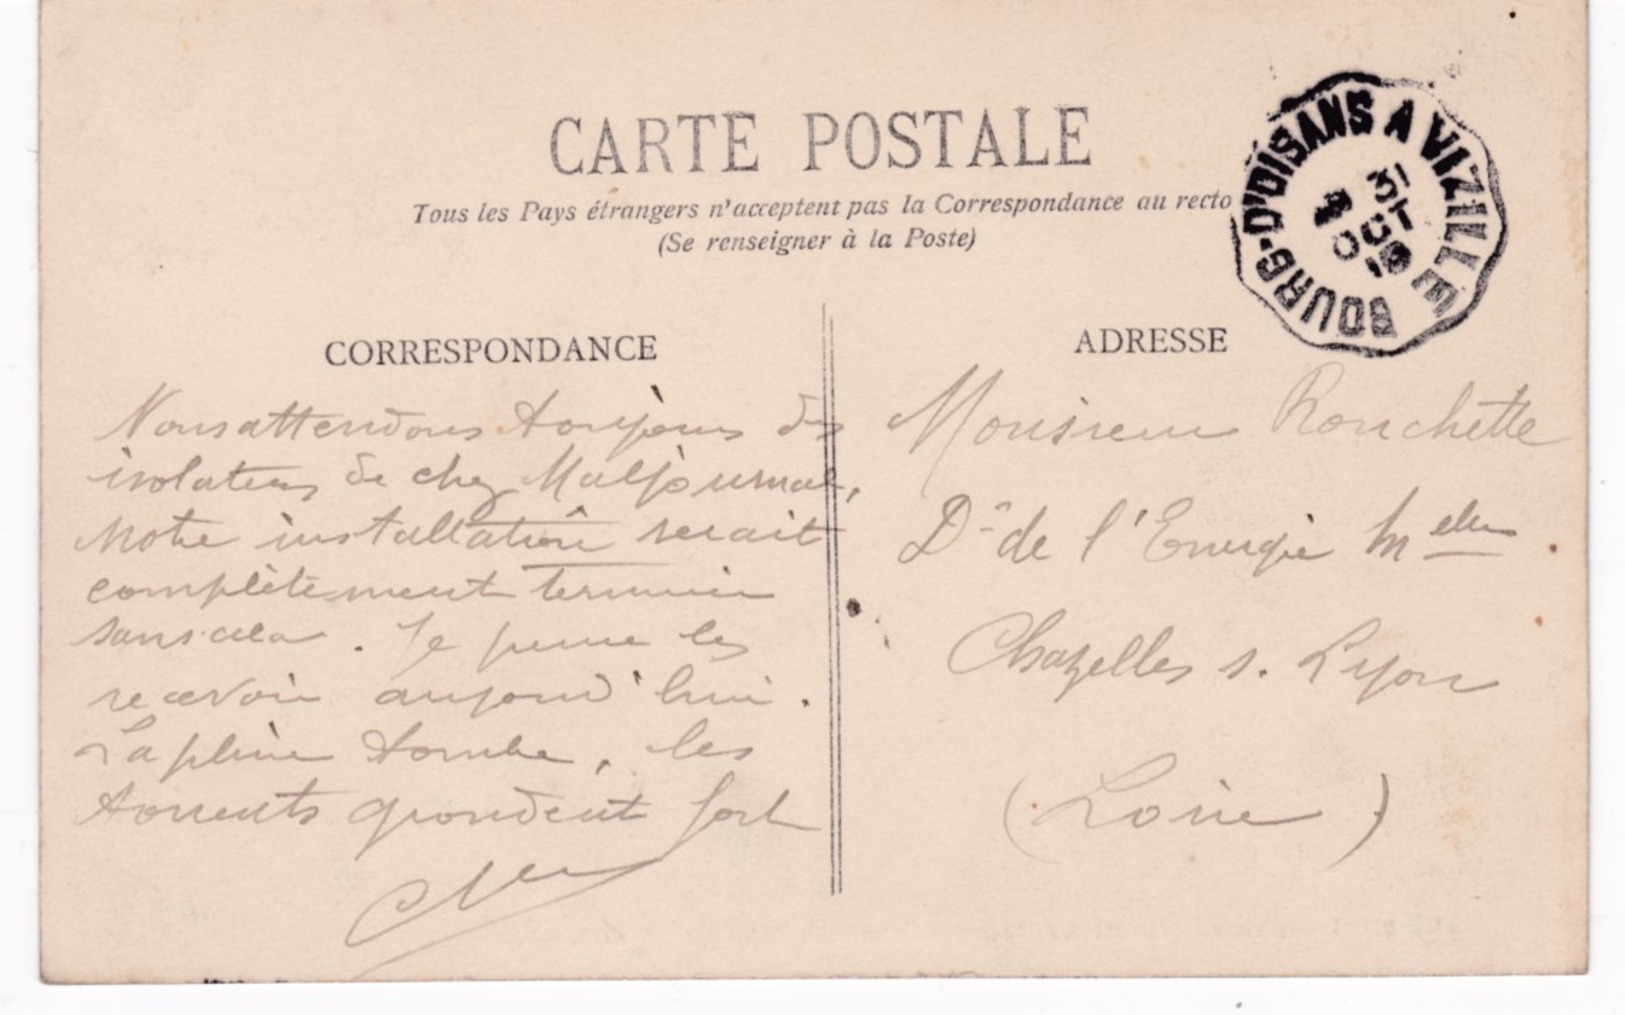 CARTE POSTALE
Tous les Pays étrangers n'acceptent pas la Correspondance au recto
(Se renseigner à la Poste)
BOURG-D'OISANS A VIZILLE
31
OCT
CORRESPONDANCE
Nous attendons toujours des
isolateurs de chez Maljournal,
Notre installation serait
complètement terminée
sans cela. Je pense les
recevoir aujourd'hui.
La pluie tombe, les
torrents grondent fort
ADRESSE
Monsieur Ronchette
Dr de l'Energie
Chazelles s. Lyon
(Loire)